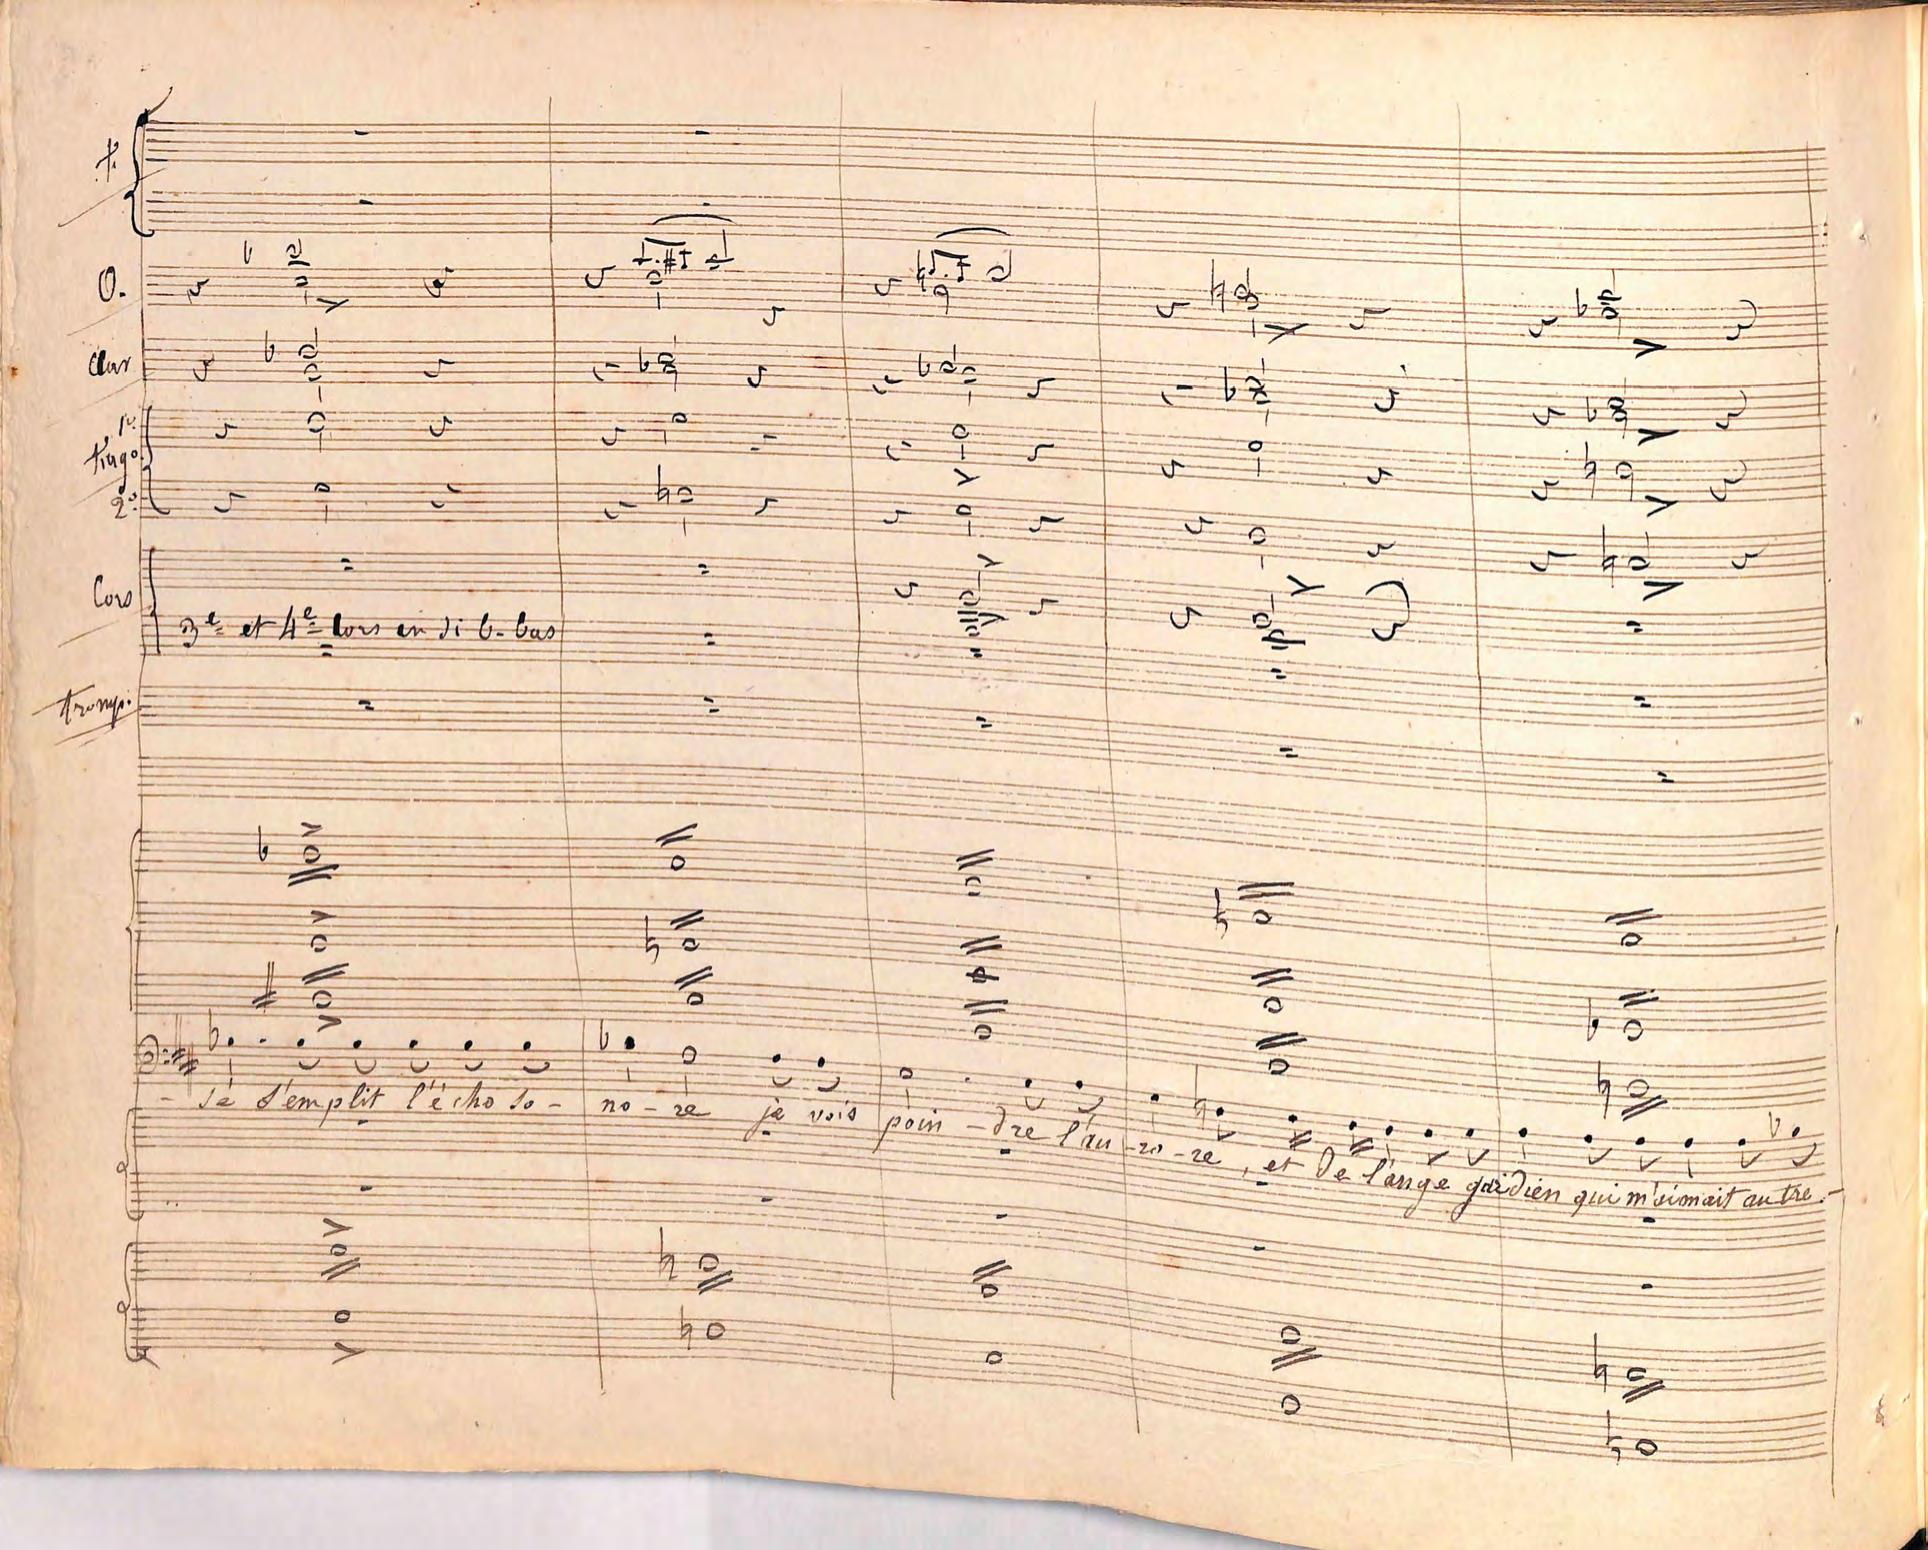 f.
O.
Clar
1º
fago.
2º
Cors
3e et 4e Cors en si b-bas
tromp.
- sé s'emplit l'écho so - no - re je vois poin - dre l'au - ro - re, et de l'ange gardien qui m'aimait autre. -